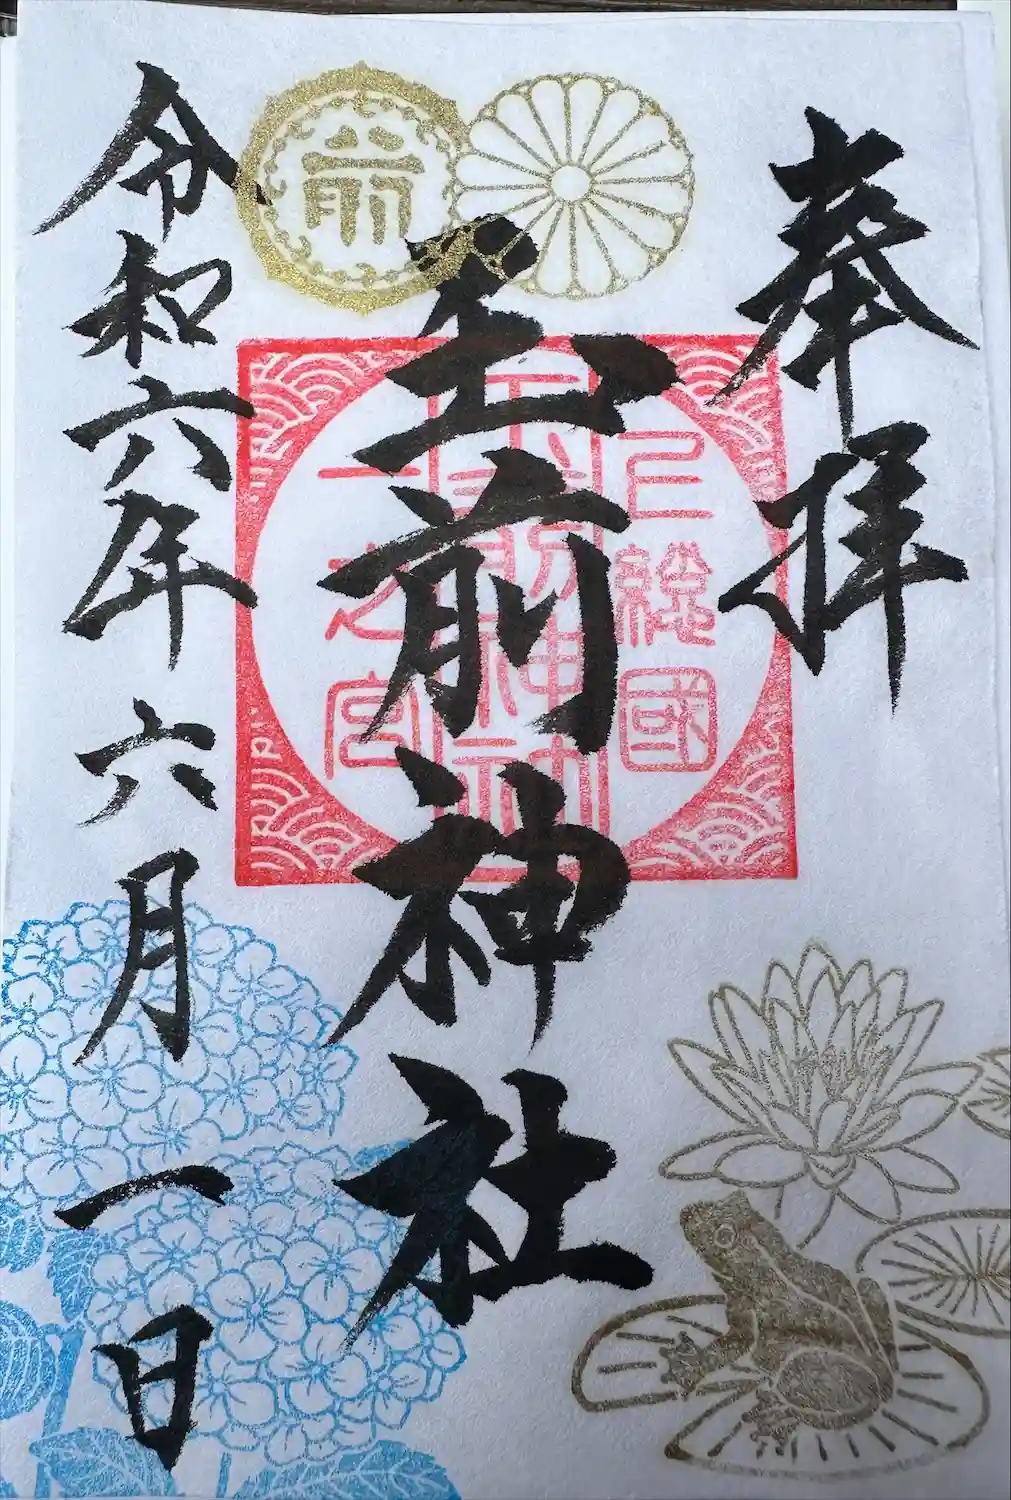 奉拝
上総國
玉前神社
玉前神社
一之宮
前
令和六年六月一日